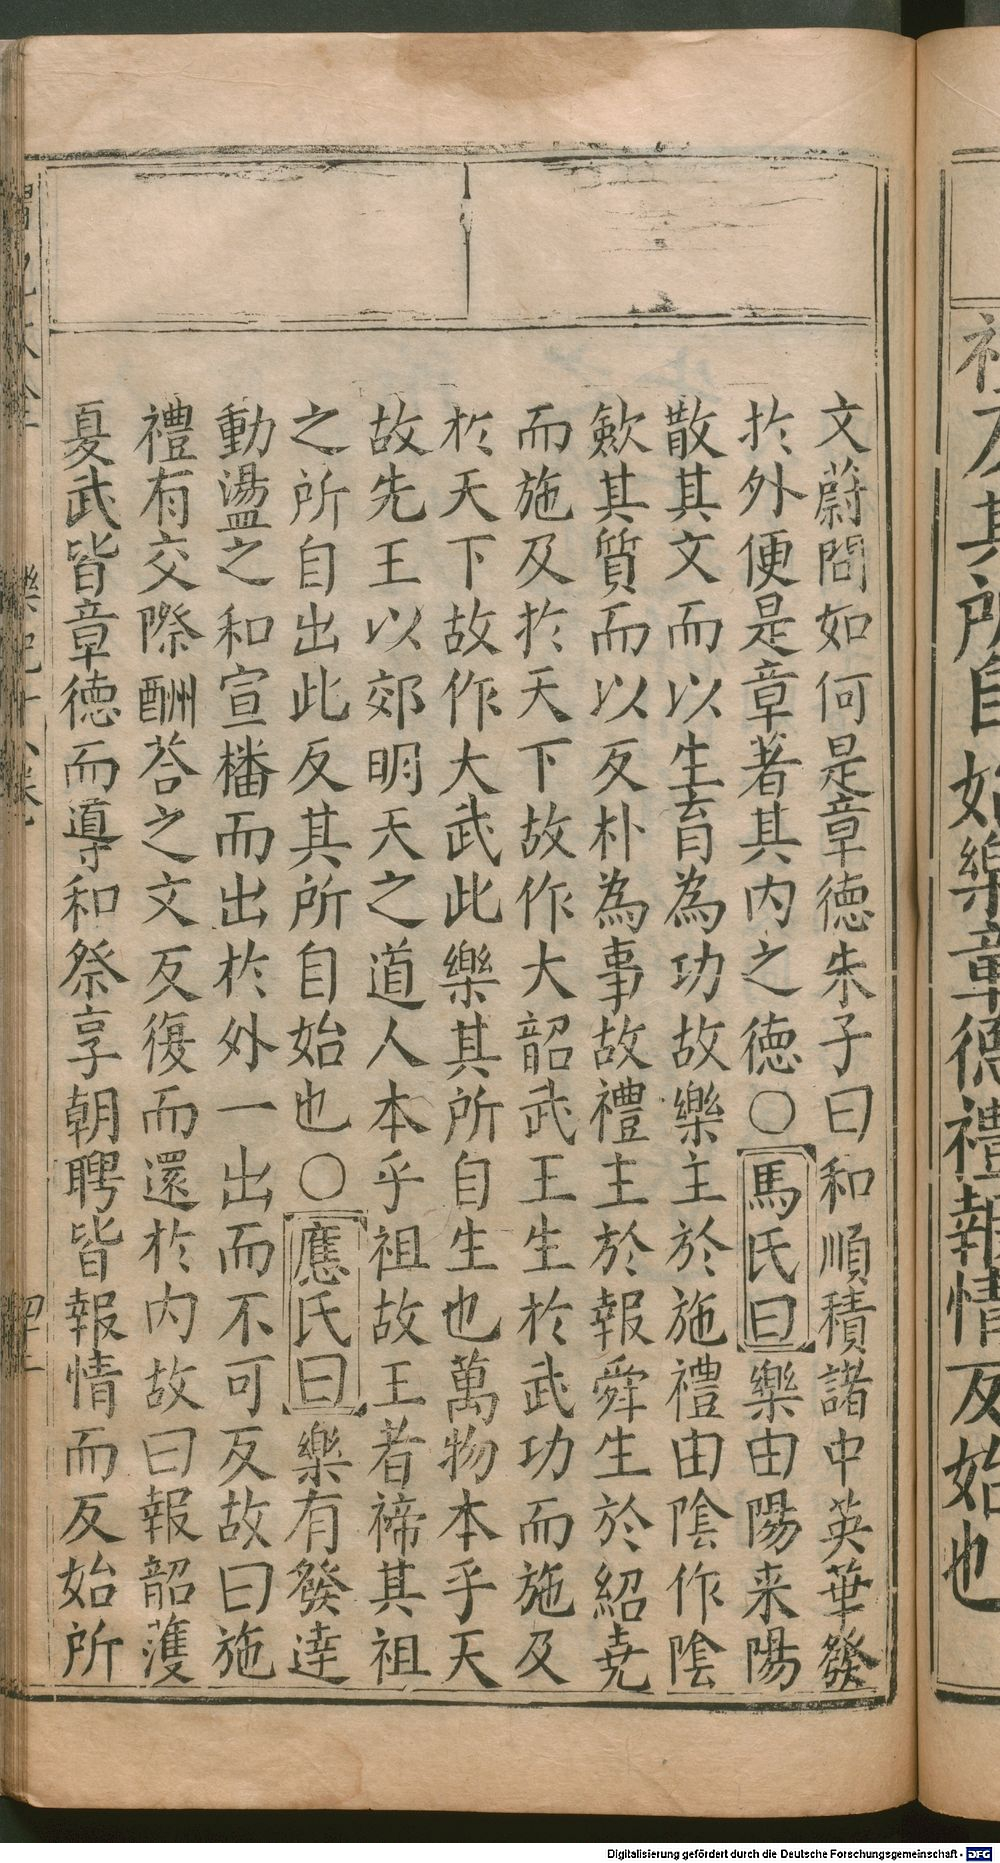 社及其所自始樂章德禮報情反始也
文蔚問如何是章德朱子曰和順積諸中英華發
扵外便是章著其内之德○馬氏曰樂由陽来陽
散其文而以生育為功故樂主於施禮由陰作陰
歛其質而以反朴為事故禮主於報舜生於紹尭
而施及扵天下故作大韶武王生於武功而施及
於天下故作大武此樂其所自生也萬物本乎天
故先王以郊明天之道人本乎祖故王者禘其祖
之所自出此反其所自始也○應氏曰樂有發達
動盪之和宣播而出於外一出而不可反故曰施
禮有交際酬荅之文反復而還於内故曰報韶濩
夏武皆章德而導和祭享朝聘皆報情而反始所
樂記十八
Digitalisierung gefördert durch die Deutsche Forschungsgemeinschaft - DFG